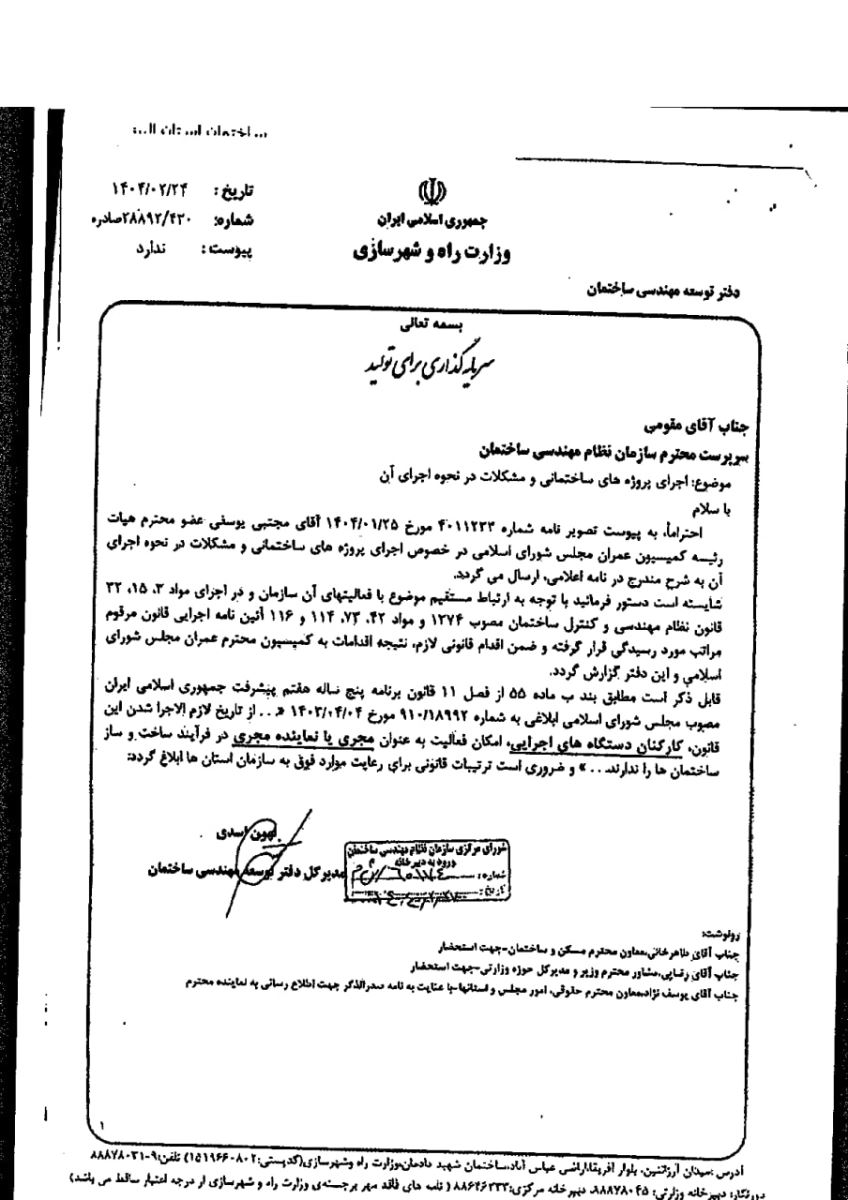 ساختمان استان البرز
تاریخ : ۱۴۰۴/۰۲/۲۴
شماره: ۲۸۸۹۲/۴۲۰صادره
پیوست : ندارد
جمهوری اسلامی ایران
وزارت راه و شهرسازی
دفتر توسعه مهندسی ساختمان
بسمه تعالی
سرمایه گذاری برای تولید
جناب آقای مقومی
سرپرست محترم سازمان نظام مهندسی ساختمان
موضوع: اجرای پروژه های ساختمانی و مشکلات در نحوه اجرای آن
با سلام
احتراماً، به پیوست تصویر نامه شماره ۴۰۱۱۲۳۳ مورخ ۱۴۰۴/۰۱/۲۵ آقای مجتبی یوسفی عضو محترم هیات
رئیسه کمیسیون عمران مجلس شورای اسلامی در خصوص اجرای پروژه های ساختمانی و مشکلات در نحوه اجرای
آن به شرح مندرج در نامه اعلامی، ارسال می گردد.
شایسته است دستور فرمائید با توجه به ارتباط مستقیم موضوع با فعالیتهای آن سازمان و در اجرای مواد ۲، ۱۵، ۳۲
قانون نظام مهندسی و کنترل ساختمان مصوب ۱۳۷۴ و مواد ۴۲، ۷۳، ۱۱۴ و ۱۱۶ آئین نامه اجرایی قانون مرقوم
مراتب مورد رسیدگی قرار گرفته و ضمن اقدام قانونی لازم، نتیجه اقدامات به کمیسیون محترم عمران مجلس شورای
اسلامی و این دفتر گزارش گردد.
قابل ذکر است مطابق بند ب ماده ۵۵ از فصل ۱۱ قانون برنامه پنج ساله هفتم پیشرفت جمهوری اسلامی ایران
مصوب مجلس شورای اسلامی ابلاغی به شماره ۹۱۰/۱۸۹۹۲ مورخ ۱۴۰۳/۰۴/۰۴ «... از تاریخ لازم الاجرا شدن این
قانون، کارکنان دستگاه های اجرایی، امکان فعالیت به عنوان مجری یا نماینده مجری در فرآیند ساخت و ساز
ساختمان ها را ندارند...» و ضروری است ترتیبات قانونی برای رعایت موارد فوق به سازمان استان ها ابلاغ گردد.
بهمن اسدی
مدیرکل دفتر توسعه مهندسی ساختمان
شورای مرکزی سازمان نظام مهندسی ساختمان
ورود به دبیرخانه
شماره:
تاریخ:
رونوشت:
جناب آقای طاهرخانی،معاون محترم مسکن و ساختمان-جهت استحضار
جناب آقای رضایی،مشاور محترم وزیر و مدیرکل حوزه وزارتی-جهت استحضار
جناب آقای یوسف نژاد،معاون محترم حقوقی، امور مجلس و استانها-با عنایت به نامه صدرالذکر جهت اطلاع رسانی به نماینده محترم
۱
آدرس :میدان آرژانتین، بلوار آفریقا،اراضی عباس آباد،ساختمان شهید دادمان،وزارت راه وشهرسازی(کدپستی:۱۵۱۹۶۶۰۸۰۲) تلفن:۹-۸۸۸۷۸۰۳۱
دورنگار: دبیرخانه وزارتی: ۸۸۸۷۸۰۴۵، دبیرخانه مرکزی:۸۸۶۴۶۳۳۳ ( نامه های فاقد مهر برجسته‌ی وزارت راه و شهرسازی از درجه اعتبار ساقط می باشد)